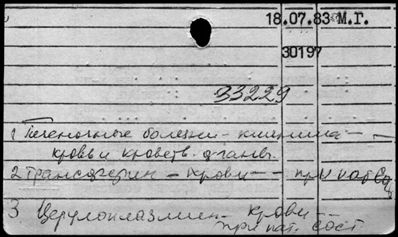 18.07.83 М.Г.
30197
33229
1 Печеночные болезни - клиника -
кровь и кроветв. органы
2 Трансферрин - крови - при пат.
3 Церулоплазмин - крови -
при пат. сост